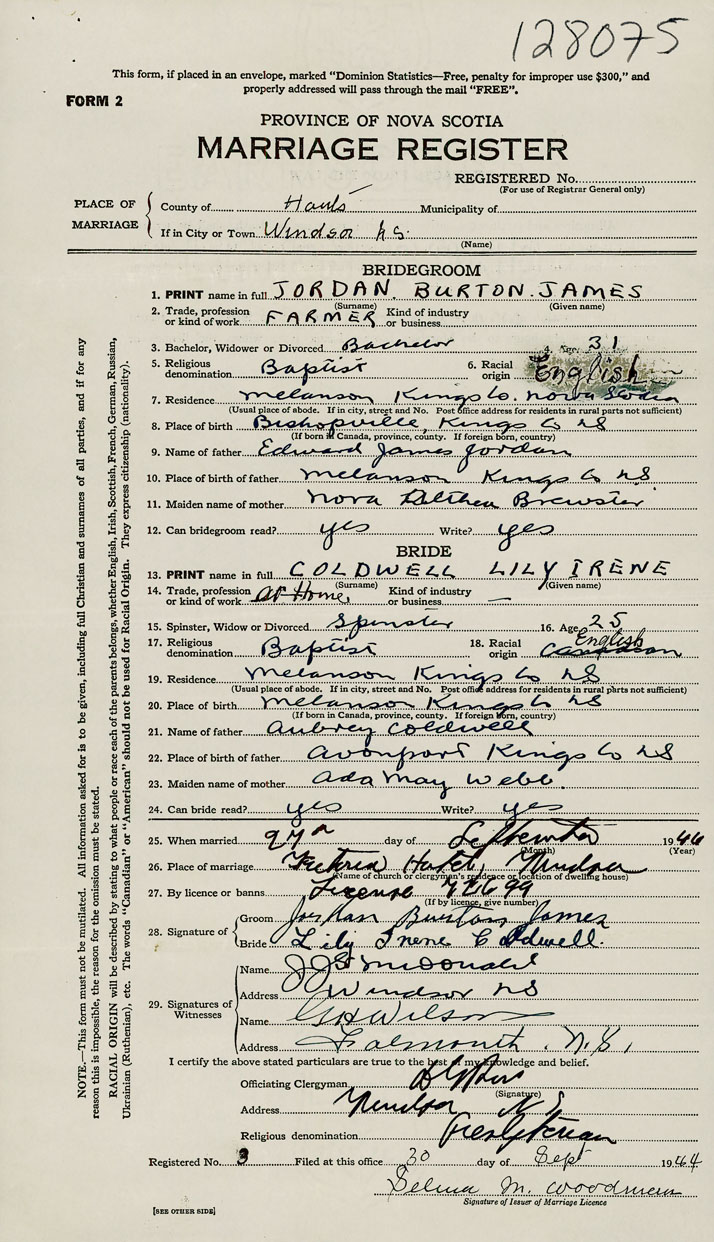 128075
This form, if placed in an envelope, marked "Dominion Statistics—Free, penalty for improper use $300," and
properly addressed will pass through the mail "FREE".
FORM 2
PROVINCE OF NOVA SCOTIA
MARRIAGE REGISTER
REGISTERED No.
(For use of Registrar General only)
PLACE OF MARRIAGE
County of Hants Municipality of
If in City or Town Windsor N.S.
(Name)
BRIDEGROOM
1. PRINT name in full JORDAN. BURTON. JAMES
(Surname) (Given name)
2. Trade, profession or kind of work FARMER Kind of industry or business
3. Bachelor, Widower or Divorced Bachelor 4. Age 31
5. Religious denomination Baptist 6. Racial origin English
7. Residence Melanson Kings Co. Nova Scotia
(Usual place of abode. If in city, street and No. Post office address for residents in rural parts not sufficient)
8. Place of birth Bishopville, Kings Co NS
(If born in Canada, province, county. If foreign born, country)
9. Name of father Edward James Jordan
10. Place of birth of father Melanson Kings Co NS
11. Maiden name of mother Nova Brewster
12. Can bridegroom read? yes Write? yes
BRIDE
13. PRINT name in full COLDWELL LILY IRENE
(Surname) (Given name)
14. Trade, profession or kind of work at Home Kind of industry or business —
15. Spinster, Widow or Divorced Spinster 16. Age 25
17. Religious denomination Baptist 18. Racial origin English Canadian
19. Residence Melanson Kings Co NS
(Usual place of abode. If in city, street and No. Post office address for residents in rural parts not sufficient)
20. Place of birth Melanson Kings Co NS
(If born in Canada, province, county. If foreign born, country)
21. Name of father Aubrey Coldwell
22. Place of birth of father Avonport Kings Co NS
23. Maiden name of mother Ada May Webb.
24. Can bride read? yes Write? yes
25. When married 27th day of September 1944
(Month) (Year)
26. Place of marriage Victoria Hotel, Windsor
(Name of church or clergyman's residence or location of dwelling house)
27. By licence or banns License 72699
(If by licence, give number)
28. Signature of
Groom Jordan Burton James
Bride Lily Irene Coldwell.
29. Signatures of Witnesses
Name McDonald
Address Windsor NS
Name G H Wilson
Address Falmouth. N.S.
I certify the above stated particulars are true to the best of my knowledge and belief.
Officiating Clergyman
(Signature)
Address Windsor N S
Religious denomination Presbyterian
Registered No. 3 Filed at this office 30 day of Sept 1944
Selma M. Woodman
Signature of Issuer of Marriage Licence
[SEE OTHER SIDE]
NOTE.—This form must not be mutilated. All information asked for is to be given, including full Christian and surnames of all parties, and if for any
reason this is impossible, the reason for the omission must be stated.
RACIAL ORIGIN will be described by stating to what people or race each of the parents belongs, whether English, Irish, Scottish, French, German, Russian,
Ukrainian (Ruthenian), etc. The words "Canadian" or "American" should not be used for Racial Origin. They express citizenship (nationality).